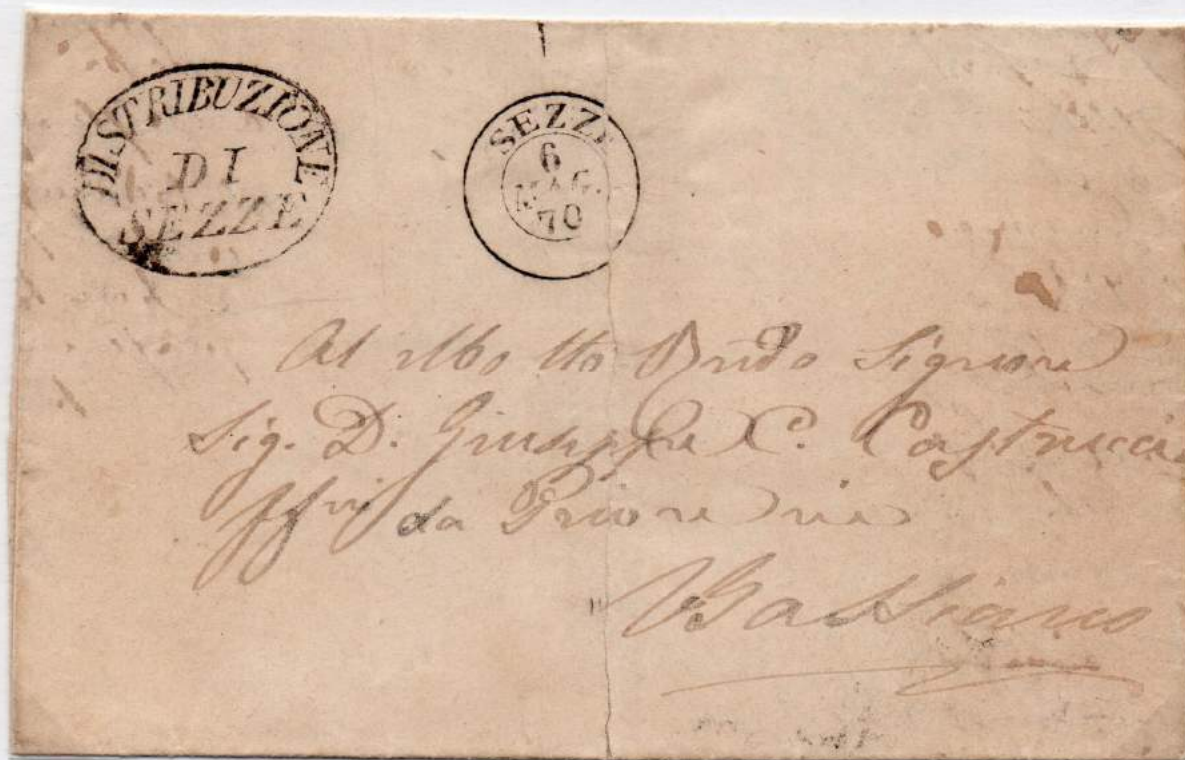 DISTRIBUZIONE
DI
SEZZE
SEZZE
6
MAG.
70
Al Signore
Sig. D. Giuseppe C. Castrucci
da Priore in
Bassiano